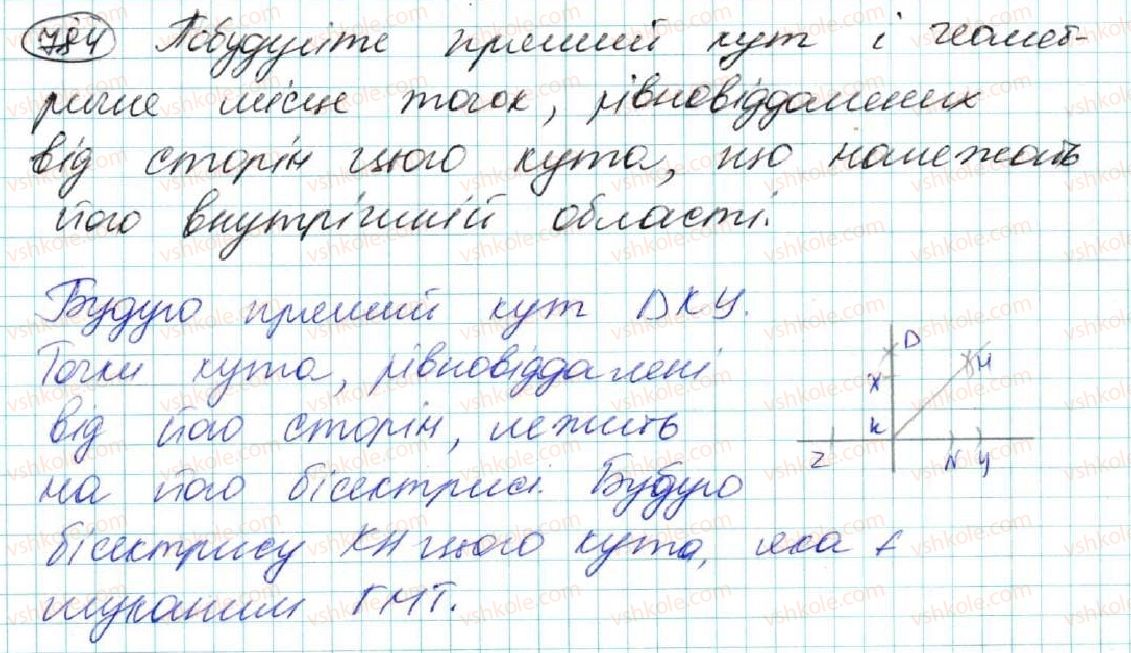 784 Побудуйте прямий кут і геомет-
ричне місце точок, рівновіддалених
від сторін цього кута, що належать
його внутрішній області.
Будую прямий кут DКЦ.
Точки кута, рівновіддалені
від його сторін, лежить
на його бісектрисі. Будую
бісектрису КН цього кута, яка є
шуканим ГМТ.
D
Х
Н
К
Z
N Ц